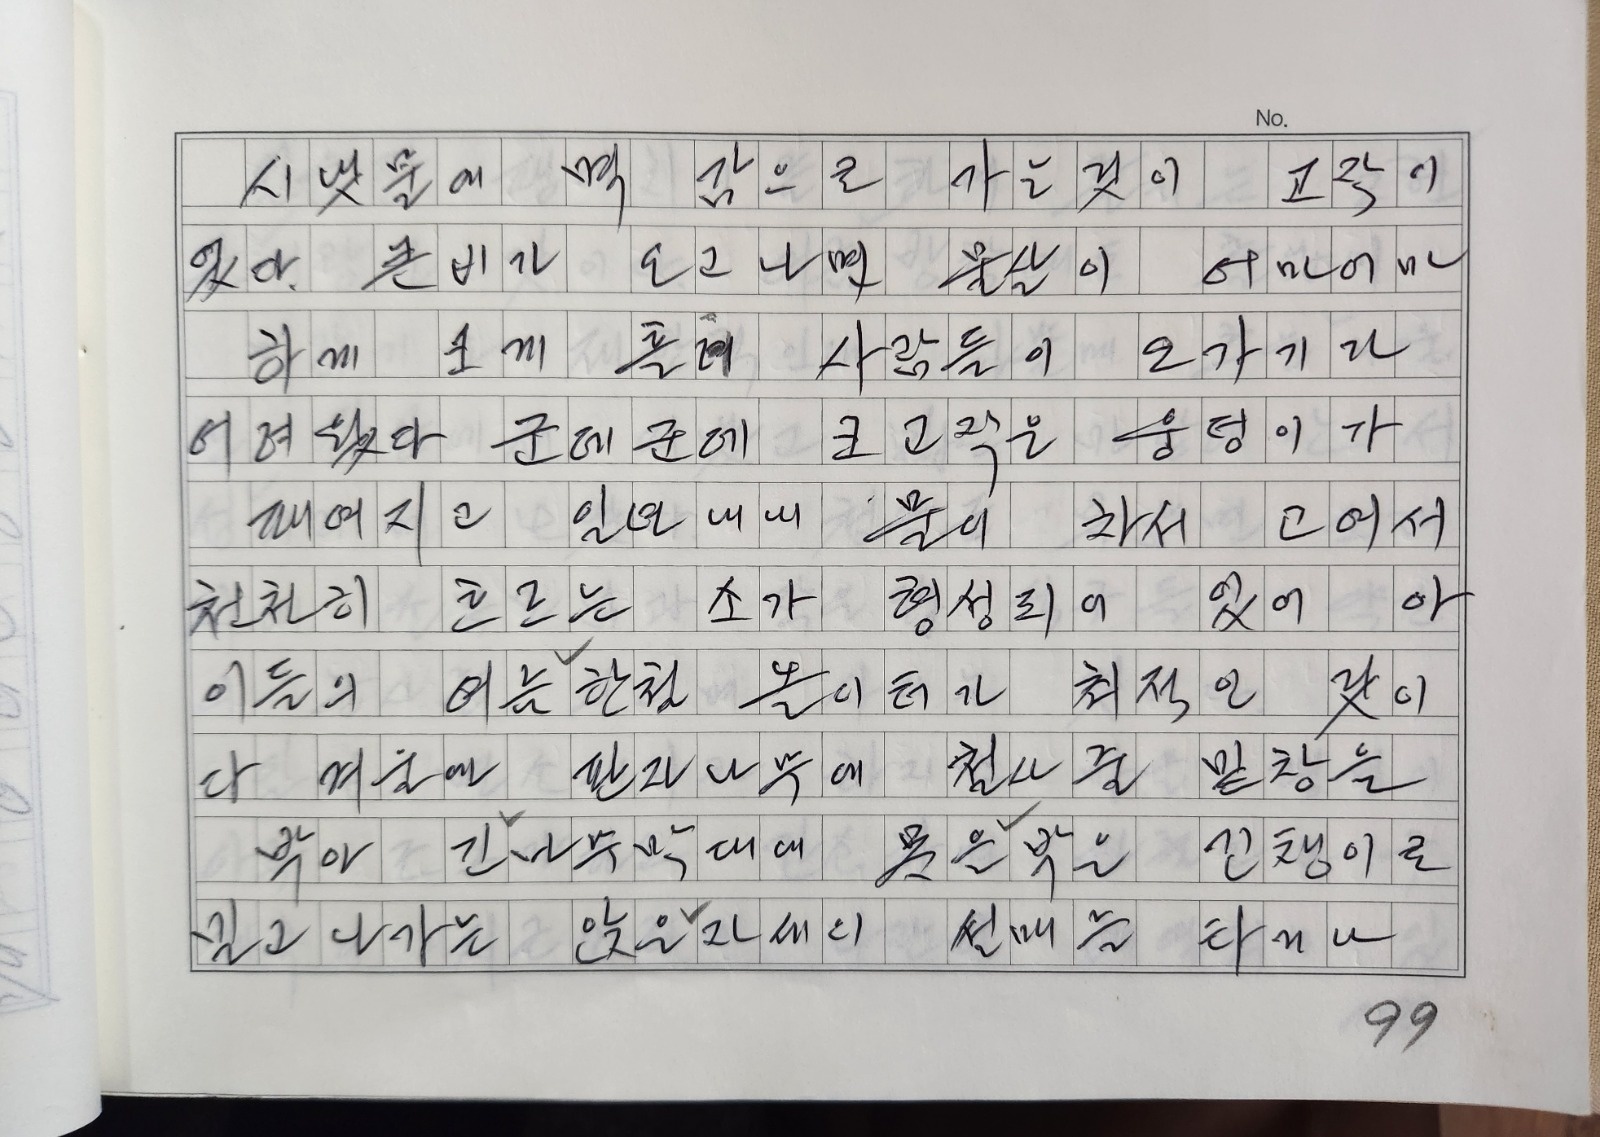 No.
시냇물에 멱 감으로 가는것이 고작이
있다. 큰비가 오고나면 물살이 어마어마
하게 소게 흘러 사람들이 오가기라
어려웠다 군데군데 크고작은 웅덩이가
패여지고 일년내내 물이 차서 고여서
천천히 흐르는 소가 형성되어 있어 아
이들의 여름한철 놀이터가 최적인 곳이
다 겨울에 판자나무에 철사줄 밑창을
박아 긴나무막대에 못은박은 긴챙이로
밀고 나가는 앉은자세의 썰매를 타거나
99